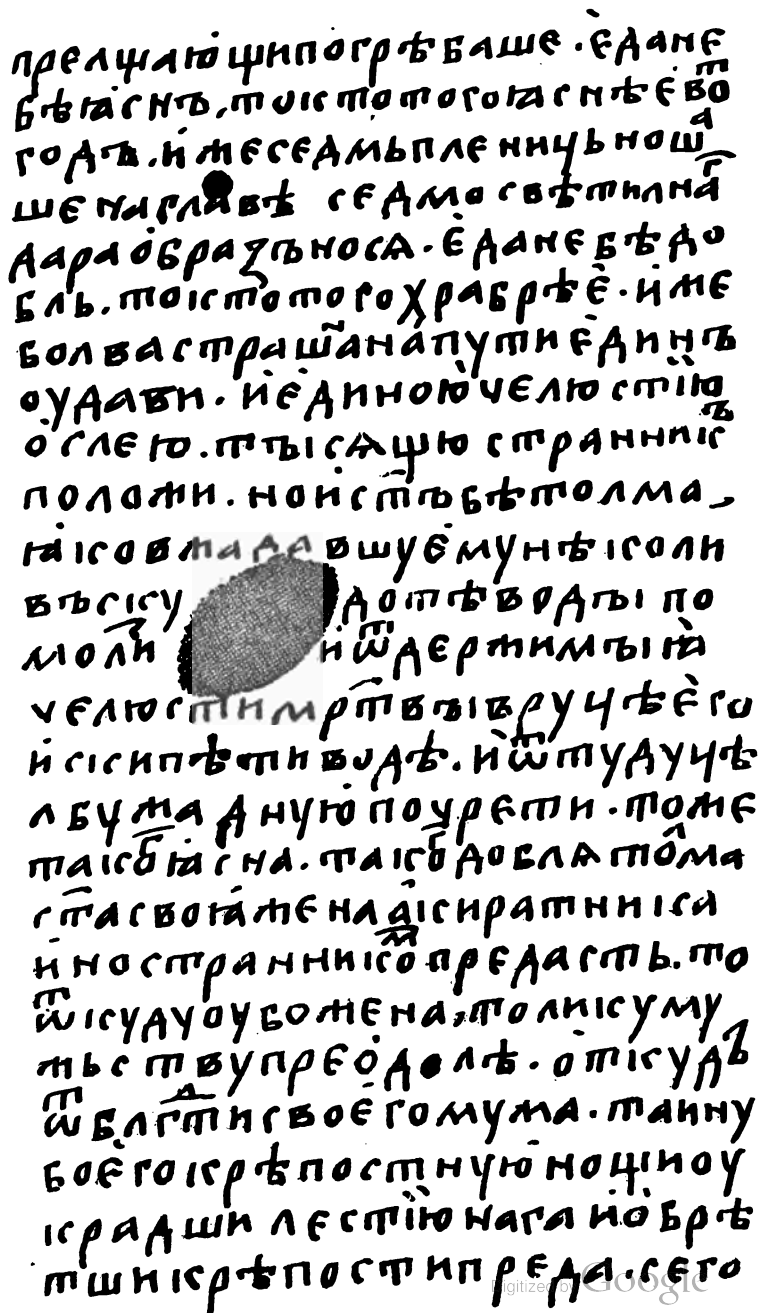 прелщаѭщипогрѣбаше·èдане
бѣꙗснъ,тоистотогоꙗснѣеѿво
годъ.ижеседмьпленицьноша
шенаглавѣ седмосвѣтилнаг
дараобразъноса·èданебѣдо
бль.тоистотогохрабрѣè·име
болвастрашанапутиединъ
оудави·иединоючелюстїю
ослею.тысѧщюстранникъ
положи·ноистъбѣтолма
ꙗковпадавшуемунѣколи
въску дотѣводыпо
моли иѿдержимыꙗ
челюстимртвывруцѣего
искипѣтиводѣ.иѿтудуцѣ
лбужаднуюпоурети·тоже
такобꙗсна·такободоблѧтолма
стасвоꙗженааикиратники
иностранникомпредасть.то
ѿкудуоубожена,толикуму
жьствупреодолѣ·откудѣ
ѿблгтисвоегомужа·таину
боегокрѣпостнуюнощиоу
крадшилестїюнагаиобрѣ
тшикрѣпостипреда·сего
Digitized by Google